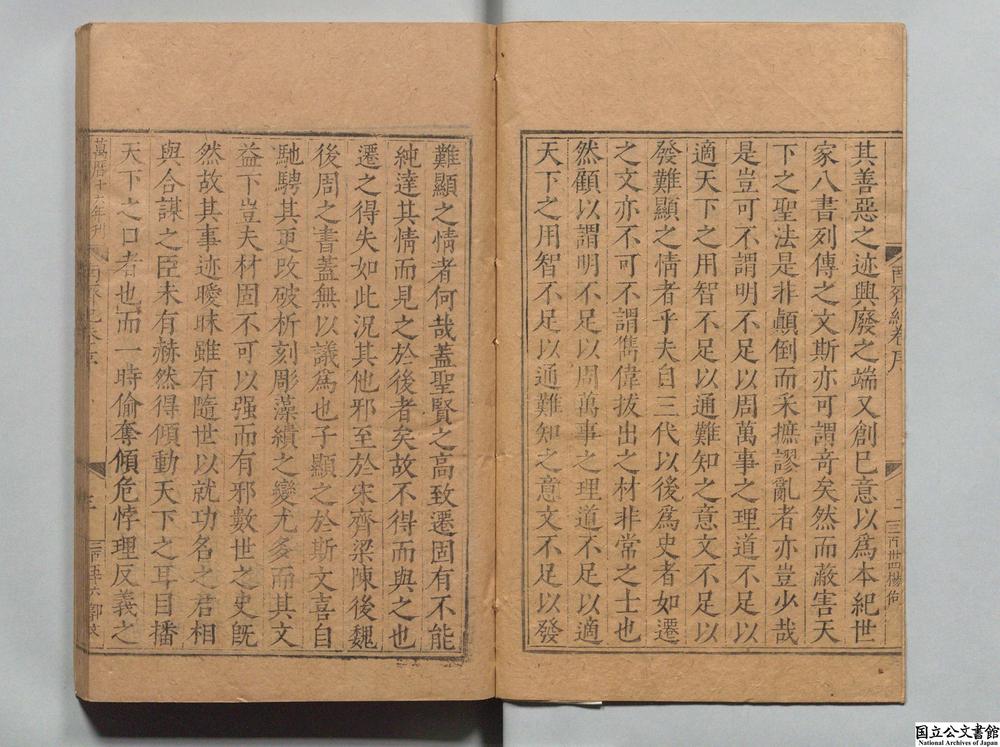 其善惡之迹興廢之端又創已意以爲本紀世
家八書列傳之文斯亦可謂奇矣然而蔽害天
下之聖法是非顛倒而采摭謬亂者亦豈少哉
是豈可不謂明不足以周萬事之理道不足以
適天下之用智不足以通難知之意文不足以
發難顯之情者乎夫自三代以後爲史者如遷
之文亦不可不謂雋偉拔出之材非常之士也
然顧以謂明不足以周萬事之理道不足以適
天下之用智不足以通難知之意文不足以發
難顯之情者何哉蓋聖賢之高致遷固有不能
純達其情而見之於後者矣故不得而與之也
遷之得失如此況其他邪至於宋齊梁陳後魏
後周之書蓋無以議爲也子顯之於斯文喜自
馳騁其更改破析刻彫藻繢之變尤多而其文
益下豈夫材固不可以强而有邪數世之史旣
然故其事迹曖昧雖有隨世以就功名之君相
與合謀之臣未有赫然得傾動天下之耳目播
天下之口者也而一時偷奪傾危悖理反義之
萬曆十六年刊
国立公文書館
National Archives of Japan